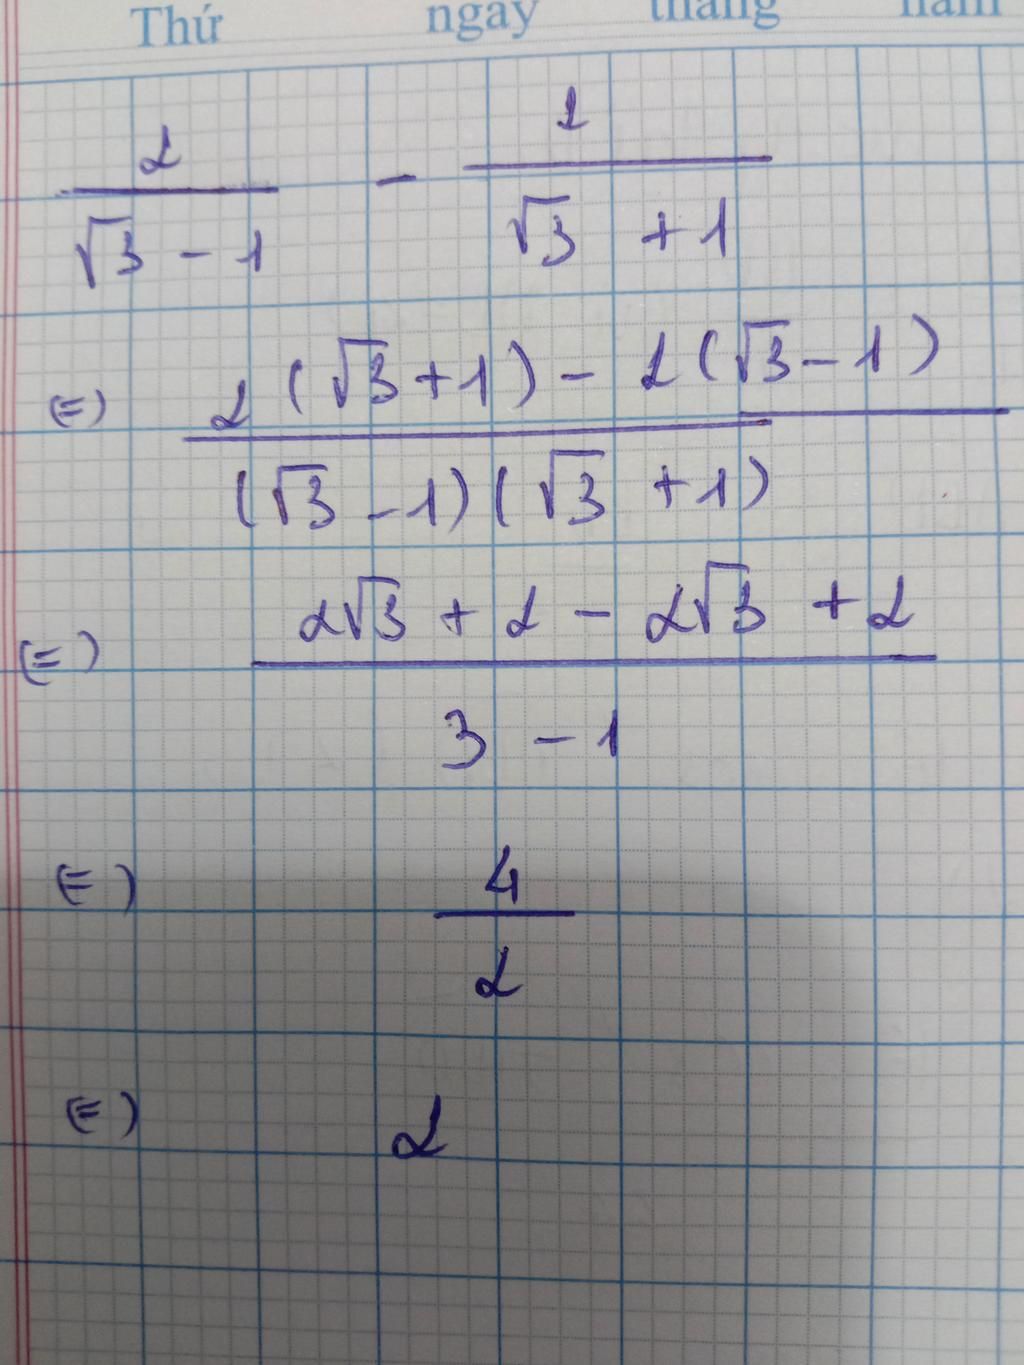 Thứ ngày tháng năm
2/(√3 - 1) - 2/(√3 + 1)
(=) (2(√3+1) - 2(√3-1))/((√3-1)(√3+1))
(=) (2√3 + 2 - 2√3 + 2)/(3 - 1)
(=) 4/2
(=) 2